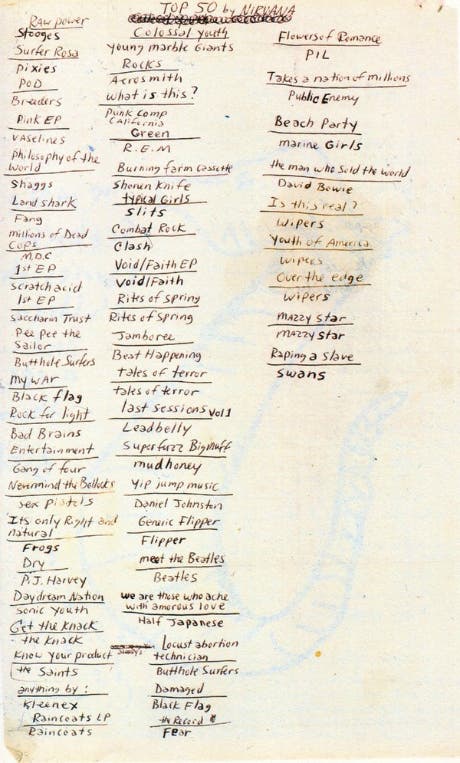 TOP 50 by NIRVANA
Raw power
Stooges
Surfer Rosa
Pixies
POD
Breeders
Pink EP
vaselines
Philosophy of the
World
Shaggs
Land shark
Fang
millions of Dead
Cops
M.D.C
1st EP
Scratch acid
1st EP
Saccharin Trust
Pee pee the
Sailor
Butthole Surfers
my war
Black flag
Rock for light
Bad Brains
Entertainment
Gang of four
Nevermind the Bollocks
sex pistols
Its only Right and
natural
Frogs
Dry
P.J. Harvey
Daydream Nation
Sonic Youth
Get the Knack
the Knack
Know your product
the Saints
anything by:
Kleenex
Raincoats LP
Raincoats
Colossal youth
Young marble Giants
Rocks
Aerosmith
What is this?
Punk Comp
California
Green
R.E.M
Burning farm Cassette
Shonen Knife
typical Girls
Slits
Combat Rock
Clash
Void/Faith EP
Void/Faith
Rites of Spring
Rites of Spring
Jamboree
Beat Happening
tales of terror
tales of terror
last sessions vol 1
Leadbelly
Superfuzz Bigmuff
mudhoney
Yip jump music
Daniel Johnston
Generic Flipper
Flipper
meet the Beatles
Beatles
we are those who ache
with amorous love
Half Japanese
Locust abortion
technician
Butthole Surfers
Damaged
Black Flag
the Record
Fear
Flowers of Romance
PIL
Takes a nation of millions
Public Enemy
Beach Party
marine Girls
the man who sold the world
David Bowie
Is this real?
Wipers
Youth of America
Wipers
Over the edge
Wipers
mazzy star
mazzy star
Raping a slave
swans